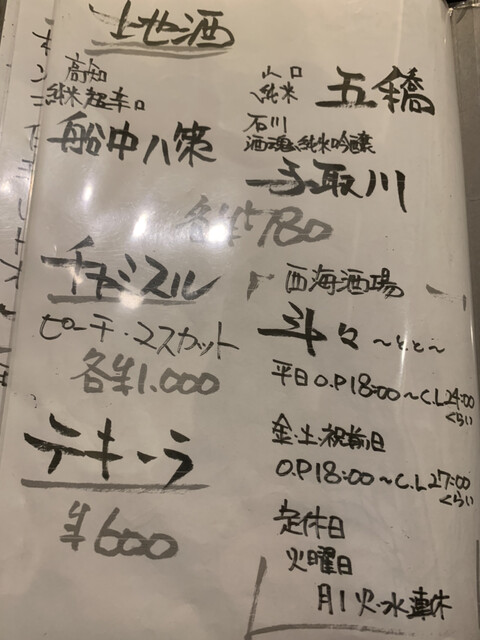 地酒
高知
純米超辛口
船中八策
山口
純米
五橋
石川
酒魂純米吟醸
手取川
各¥780
チャミスル
ピーチ・マスカット
各¥1.000
テキーラ
¥600
西海酒場
斗々 〜とと〜
平日O.P18:00〜C.L24:00
くらい
金・土・祝前日
O.P18:00〜C.L27:00
くらい
定休日
火曜日
月1火・水連休